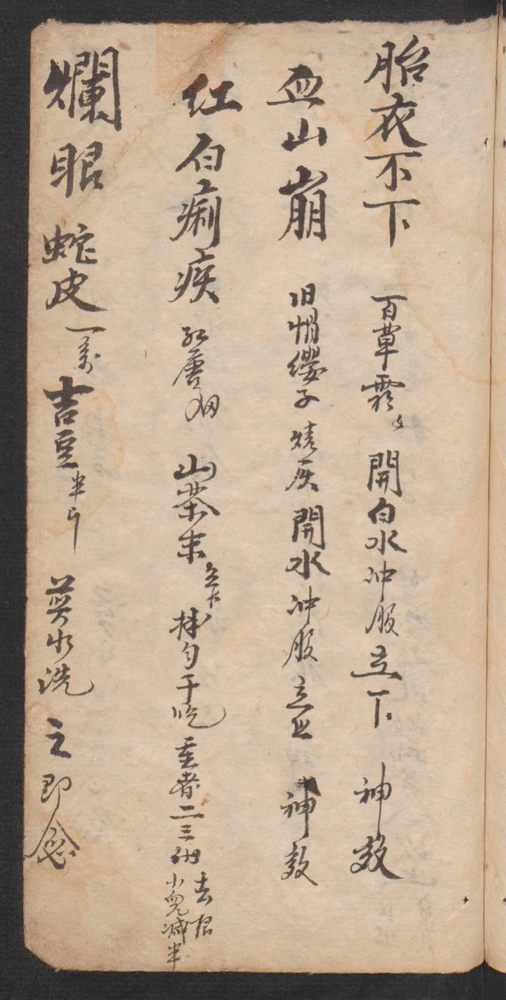 胎衣不下 百草霜 開白水冲服立下 神效
血山崩 旧帽纓子 燒灰 開水冲服 立止 神效
红白痢疾 红唐 山茶末 拌匀干吃 重者二三付 去根 小兒减半
爛眼 蛇皮一条 吉豆半斤 煎水洗之即愈